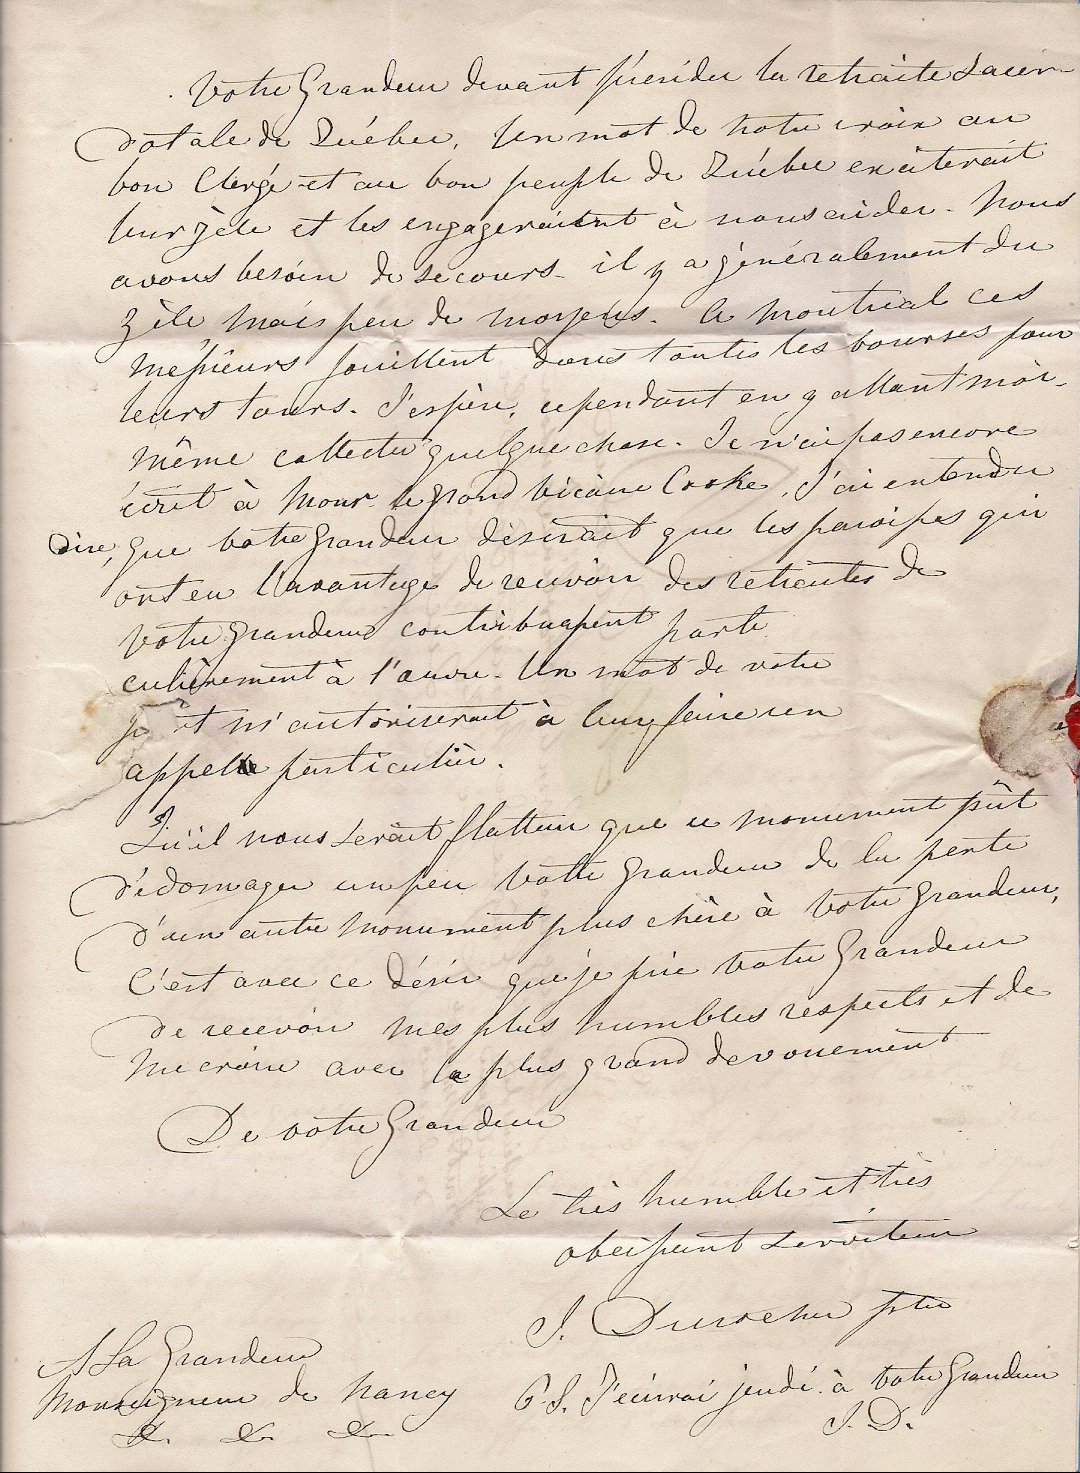 Votre Grandeur devant présider la retraite sacer-
dotale de Québec, un mot de votre voix au
bon Clergé et au bon peuple de Québec exciterait
leur zèle et les engageraient à nous aider. Nous
avons besoin de secours. il y a généralement du
zèle mais peu de moyens. A Montréal ces
Messieurs fouillent dans toutes les bourses pour
leurs tours. J'espère, cependant en y allant moi-
même collecter quelque chose. Je n'ai pas encore
écrit à Monsr. le grand Vicaire Cooke, J'ai entendu
dire, que votre Grandeur désirait que les paroisses qui
ont eu l'avantage de recevoir des retraites de
Votre Grandeur contribuassent parti
culièrement à l'œuvre. Un mot de votre
part m'autoriserait à leur faire un
appel particulier.
Qu'il nous serait flatteur que ce monument pût
dédomager un peu Votre Grandeur de la perte
d'un autre monument plus chère à Votre Grandeur,
C'est avec ce désir que je prie Votre Grandeur
de recevoir mes plus humbles respects et de
me croire avec le plus grand devouement
De votre Grandeur
Le très humble et très
obeissant serviteur
J. Durocher ptre
A Sa Grandeur
Monseigneur de Nancy
&. &. &.
P.S. J'écrirai jeudi à Votre Grandeur
J. D.